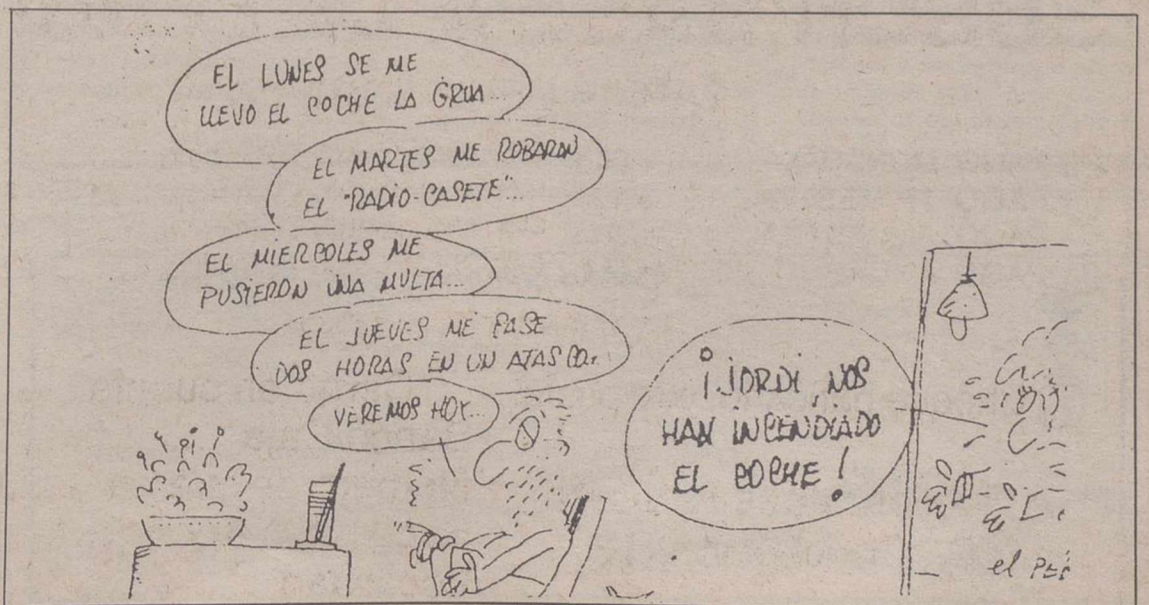 EL LUNES SE ME
LLEVO EL COCHE LA GRUA...
EL MARTES ME ROBARAN
EL "RADIO-CASETE"...
EL MIERCOLES ME
PUSIERON UNA MULTA...
EL JUEVES ME PASE
DOS HORAS EN UN ATASCO..
VEREMOS HOY...
¡JORDI, NOS
HAN INCENDIADO
EL COCHE!
el